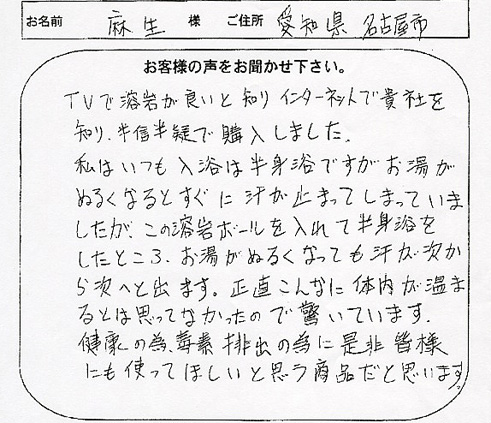 お名前 麻生 様 ご住所 愛知県 名古屋市
お客様の声をお聞かせ下さい。
TVで溶岩が良いと知りインターネットで貴社を
知り、半信半疑で購入しました。
私はいつも入浴は半身浴ですがお湯が
ぬるくなるとすぐに汗が止まってしまっていま
したが、この溶岩ボールを入れて半身浴を
したところ、お湯がぬるくなっても汗が次か
ら次へと出ます。正直こんなに体内が温ま
るとは思ってなかったので驚いています。
健康の為、毒素排出の為に是非皆様
にも使ってほしいと思う商品だと思います。